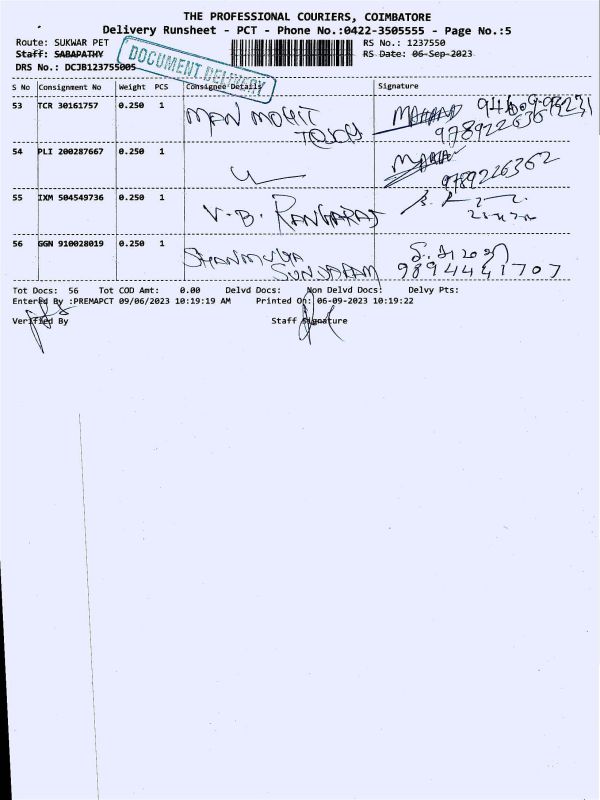 THE PROFESSIONAL COURIERS, COIMBATORE
Delivery Runsheet - PCT - Phone No.:0422-3505555 - Page No.:5
Route: SUKWAR PET
RS No.: 1237550
Staff: SABAPATHY
RS Date: 06-Sep-2023
DRS No.: DCJB123755005
DOCUMENT DELIVERY
S No Consignment No Weight PCS Consignee Details Signature
53 TCR 30161757 0.250 1 MAN MOHIT
TOUCH
54 PLI 200287667 0.250 1
9789226362
55 IXM 504549736 0.250 1 V.B. RANGARAJ
56 GGN 910028019 0.250 1 SHANMUGA
SUNDARAM
9894441707
Tot Docs: 56 Tot COD Amt: 0.00 Delvd Docs: Non Delvd Docs: Delvy Pts:
Entered By :PREMAPCT 09/06/2023 10:19:19 AM Printed On: 06-09-2023 10:19:22
Verified By Staff Signature